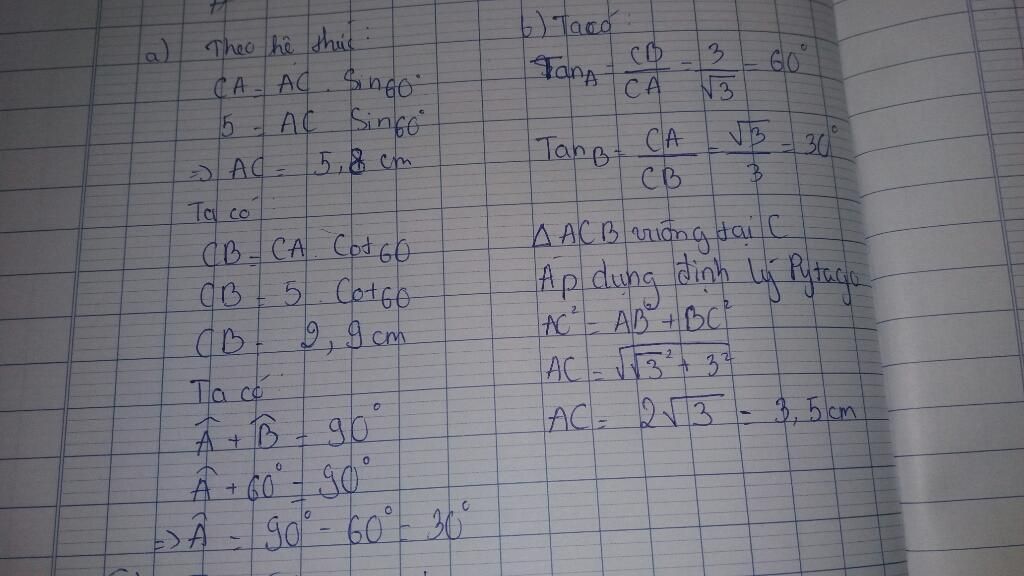 a) Theo hệ thức:
CA = AC . Sin60°
5 = AC Sin60°
=> AC = 5,8 cm
Ta có
CB = CA . Cot60
CB = 5 . Cot60
CB = 2,9 cm
Ta có
Â + B̂ = 90°
Â + 60° = 90°
=> Â = 90° - 60° = 30°
b) Ta có:
TanA = CB/CA = 3/√3 = 60°
TanB = CA/CB = √3/3 = 30°
Δ ACB vuông tại C
Áp dụng định lý Pytago
AC² = AB² + BC²
AC = √(√3² + 3²)
AC = 2√3 = 3,5cm